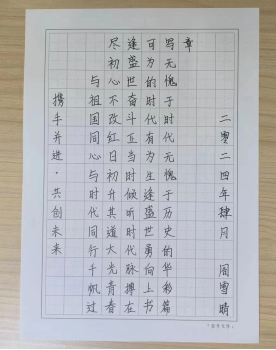 携手并进·共创未来
与祖国同心与时代同行千帆过
尽初心不改红日初升其道大光青春
逢盛世奋斗正当时倾听时代脉搏在
可为的时代有为生逢盛世勇向上书
写无愧于时代无愧于历史的华彩篇
章
二零二四年肆月 周雪晴